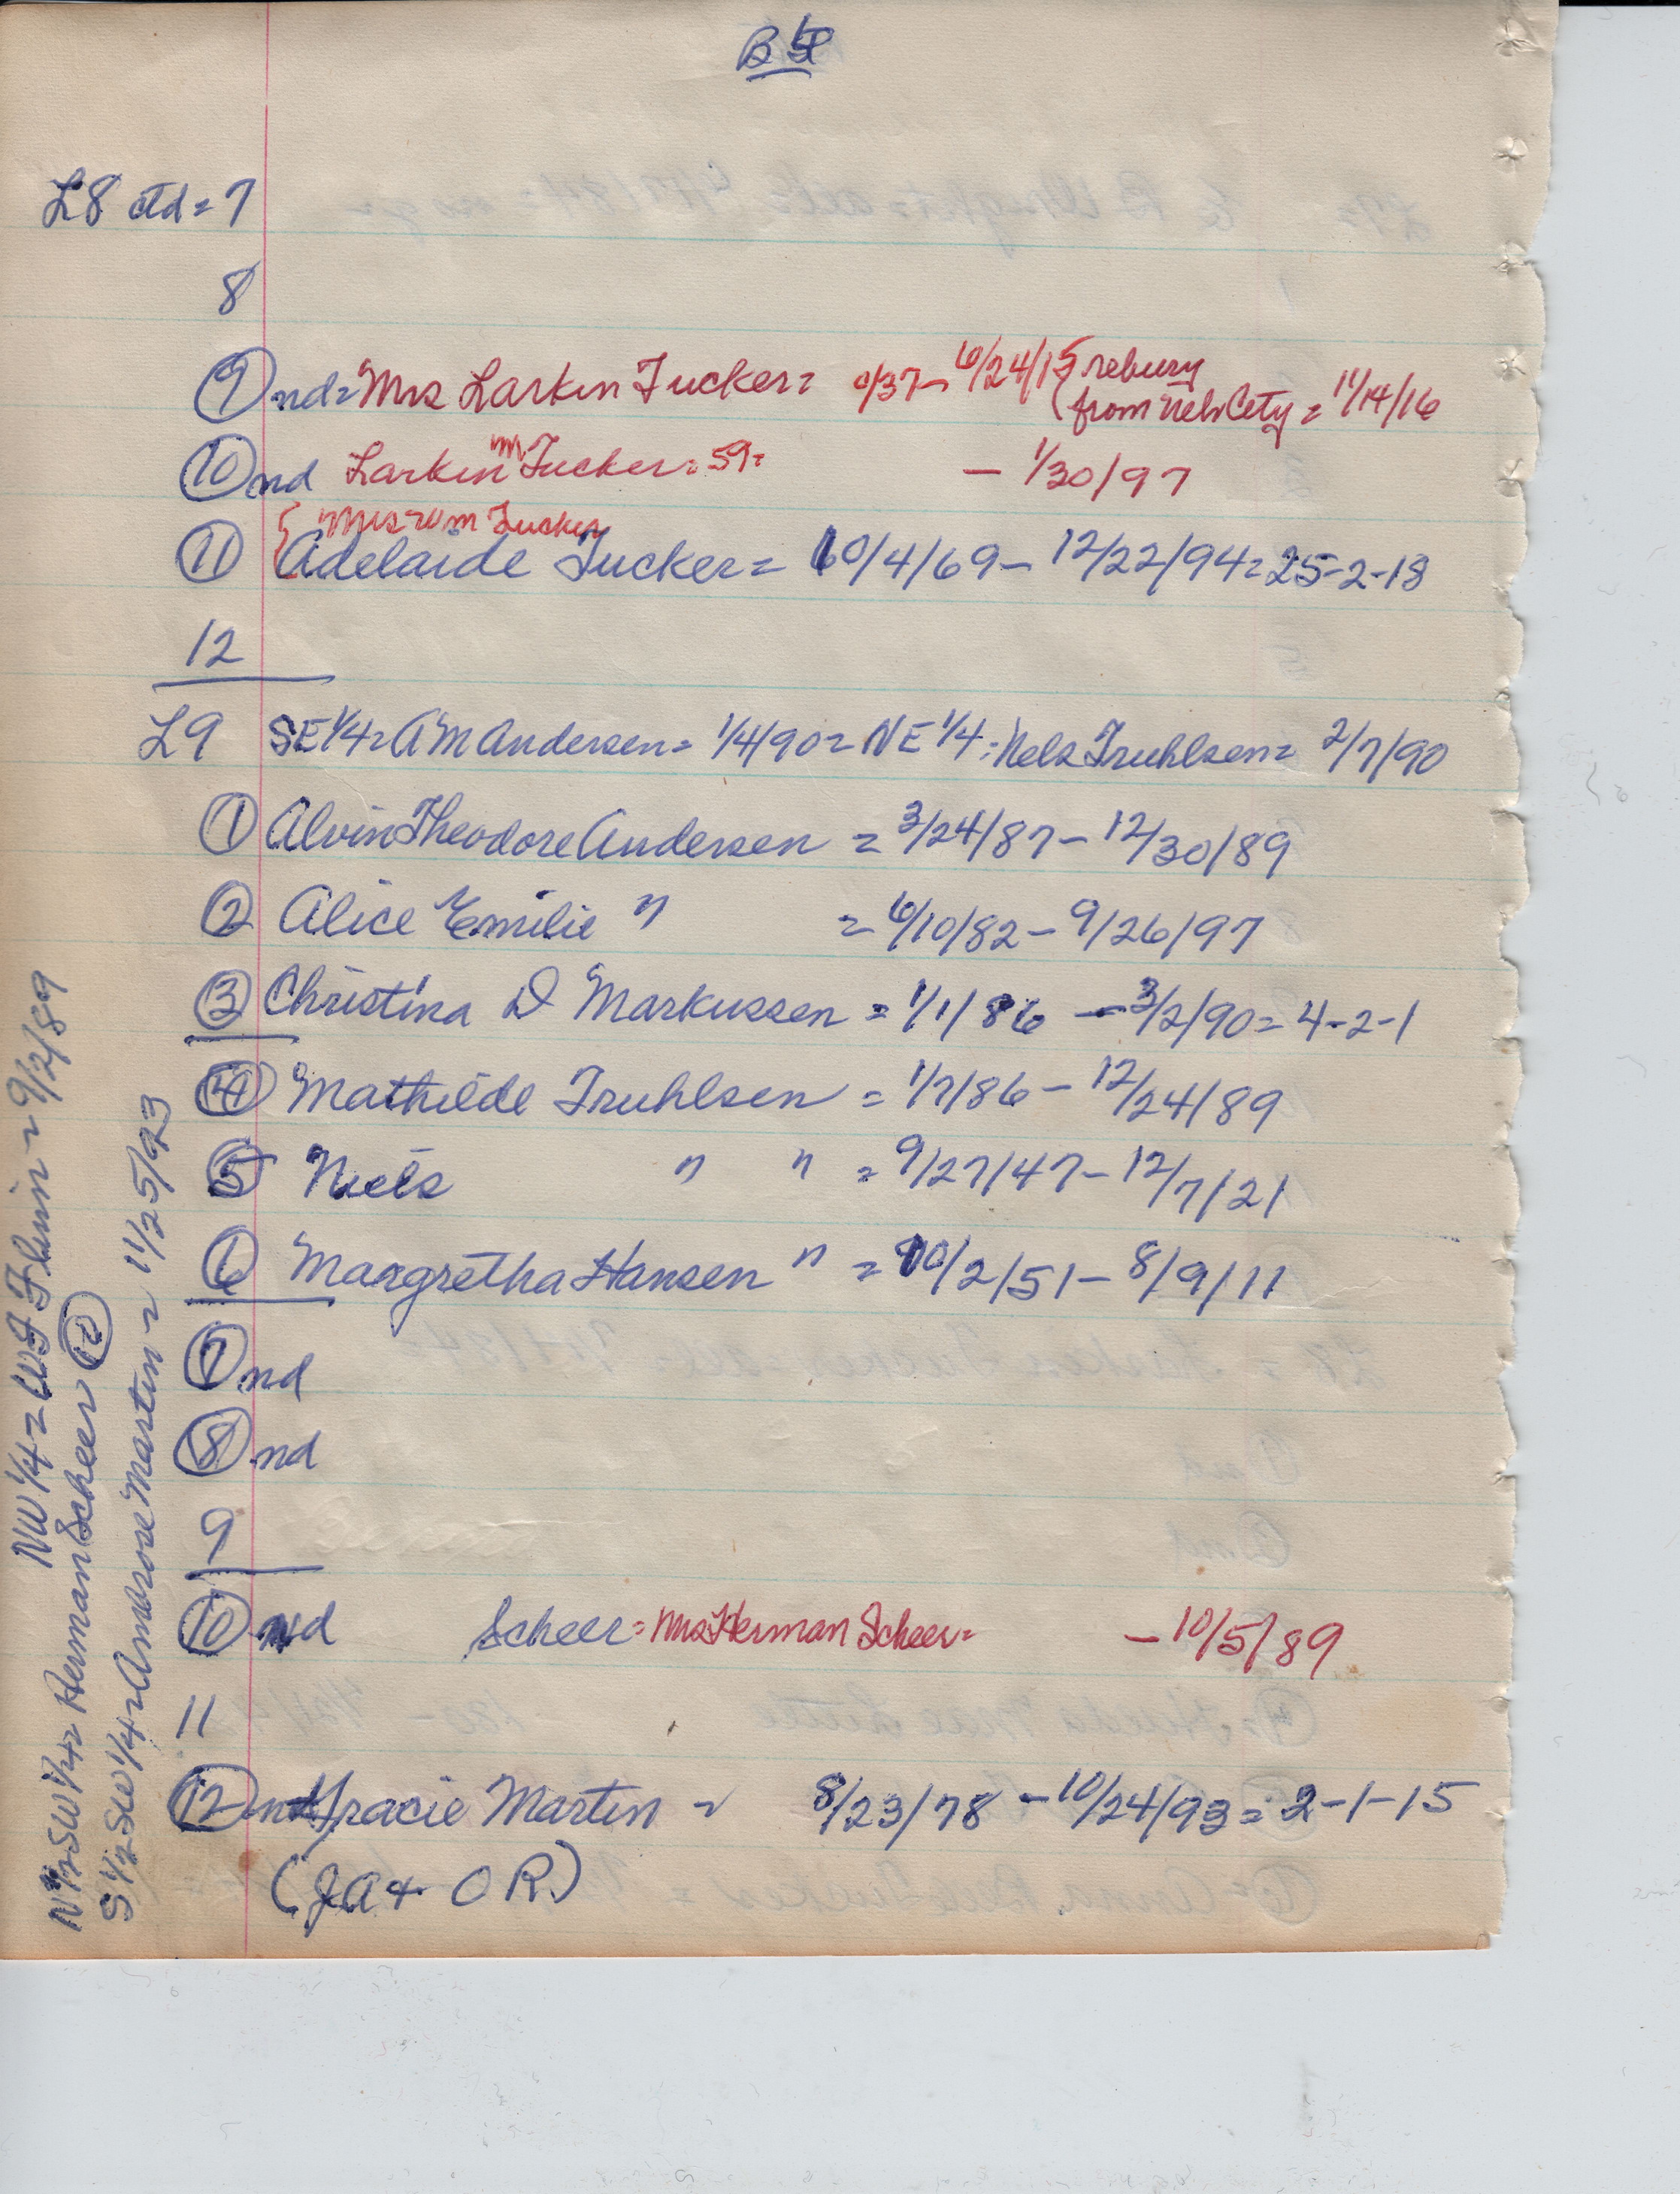 L8 ctd = 7
8
9 nd = Mrs Larkin Tucker = /37 - 6/24/15 rebury
from Neb City = 11/14/16
10 nd Larkin M Tucker = 59 = - 1/30/97
Mrs Wm Tucker
11 Adelaide Tucker = 10/4/69 - 12/22/94 = 25-2-18
12
L9 SE 1/4 = A M Andersen = 1/4/90 = NE 1/4 = Nels Truhlsen = 2/7/90
1 Alvin Theodore Andersen = 3/24/87 - 12/30/89
2 Alice Emilie " = 6/10/82 - 9/26/97
3 Christina D Markussen = 1/1/86 - 3/2/90 = 4-2-1
4 Mathilde Truhlsen = 1/7/86 - 12/24/89
5 Niels " " = 9/27/47 - 12/7/21
6 Margretha Hansen " = 10/2/51 - 8/9/11
7 nd
8 nd
9
10 nd Scheer = Mrs Herman Scheer = - 10/5/89
11
12 Gracie Martin = 8/23/78 - 10/24/93 = 2-1-15
(JA + OR)
NW 1/4 = = 9/2/89
N 1/2 SW 1/4 = Herman Scheer 10
S 1/2 SW 1/4 = Ambrose Martin = 11/25/93